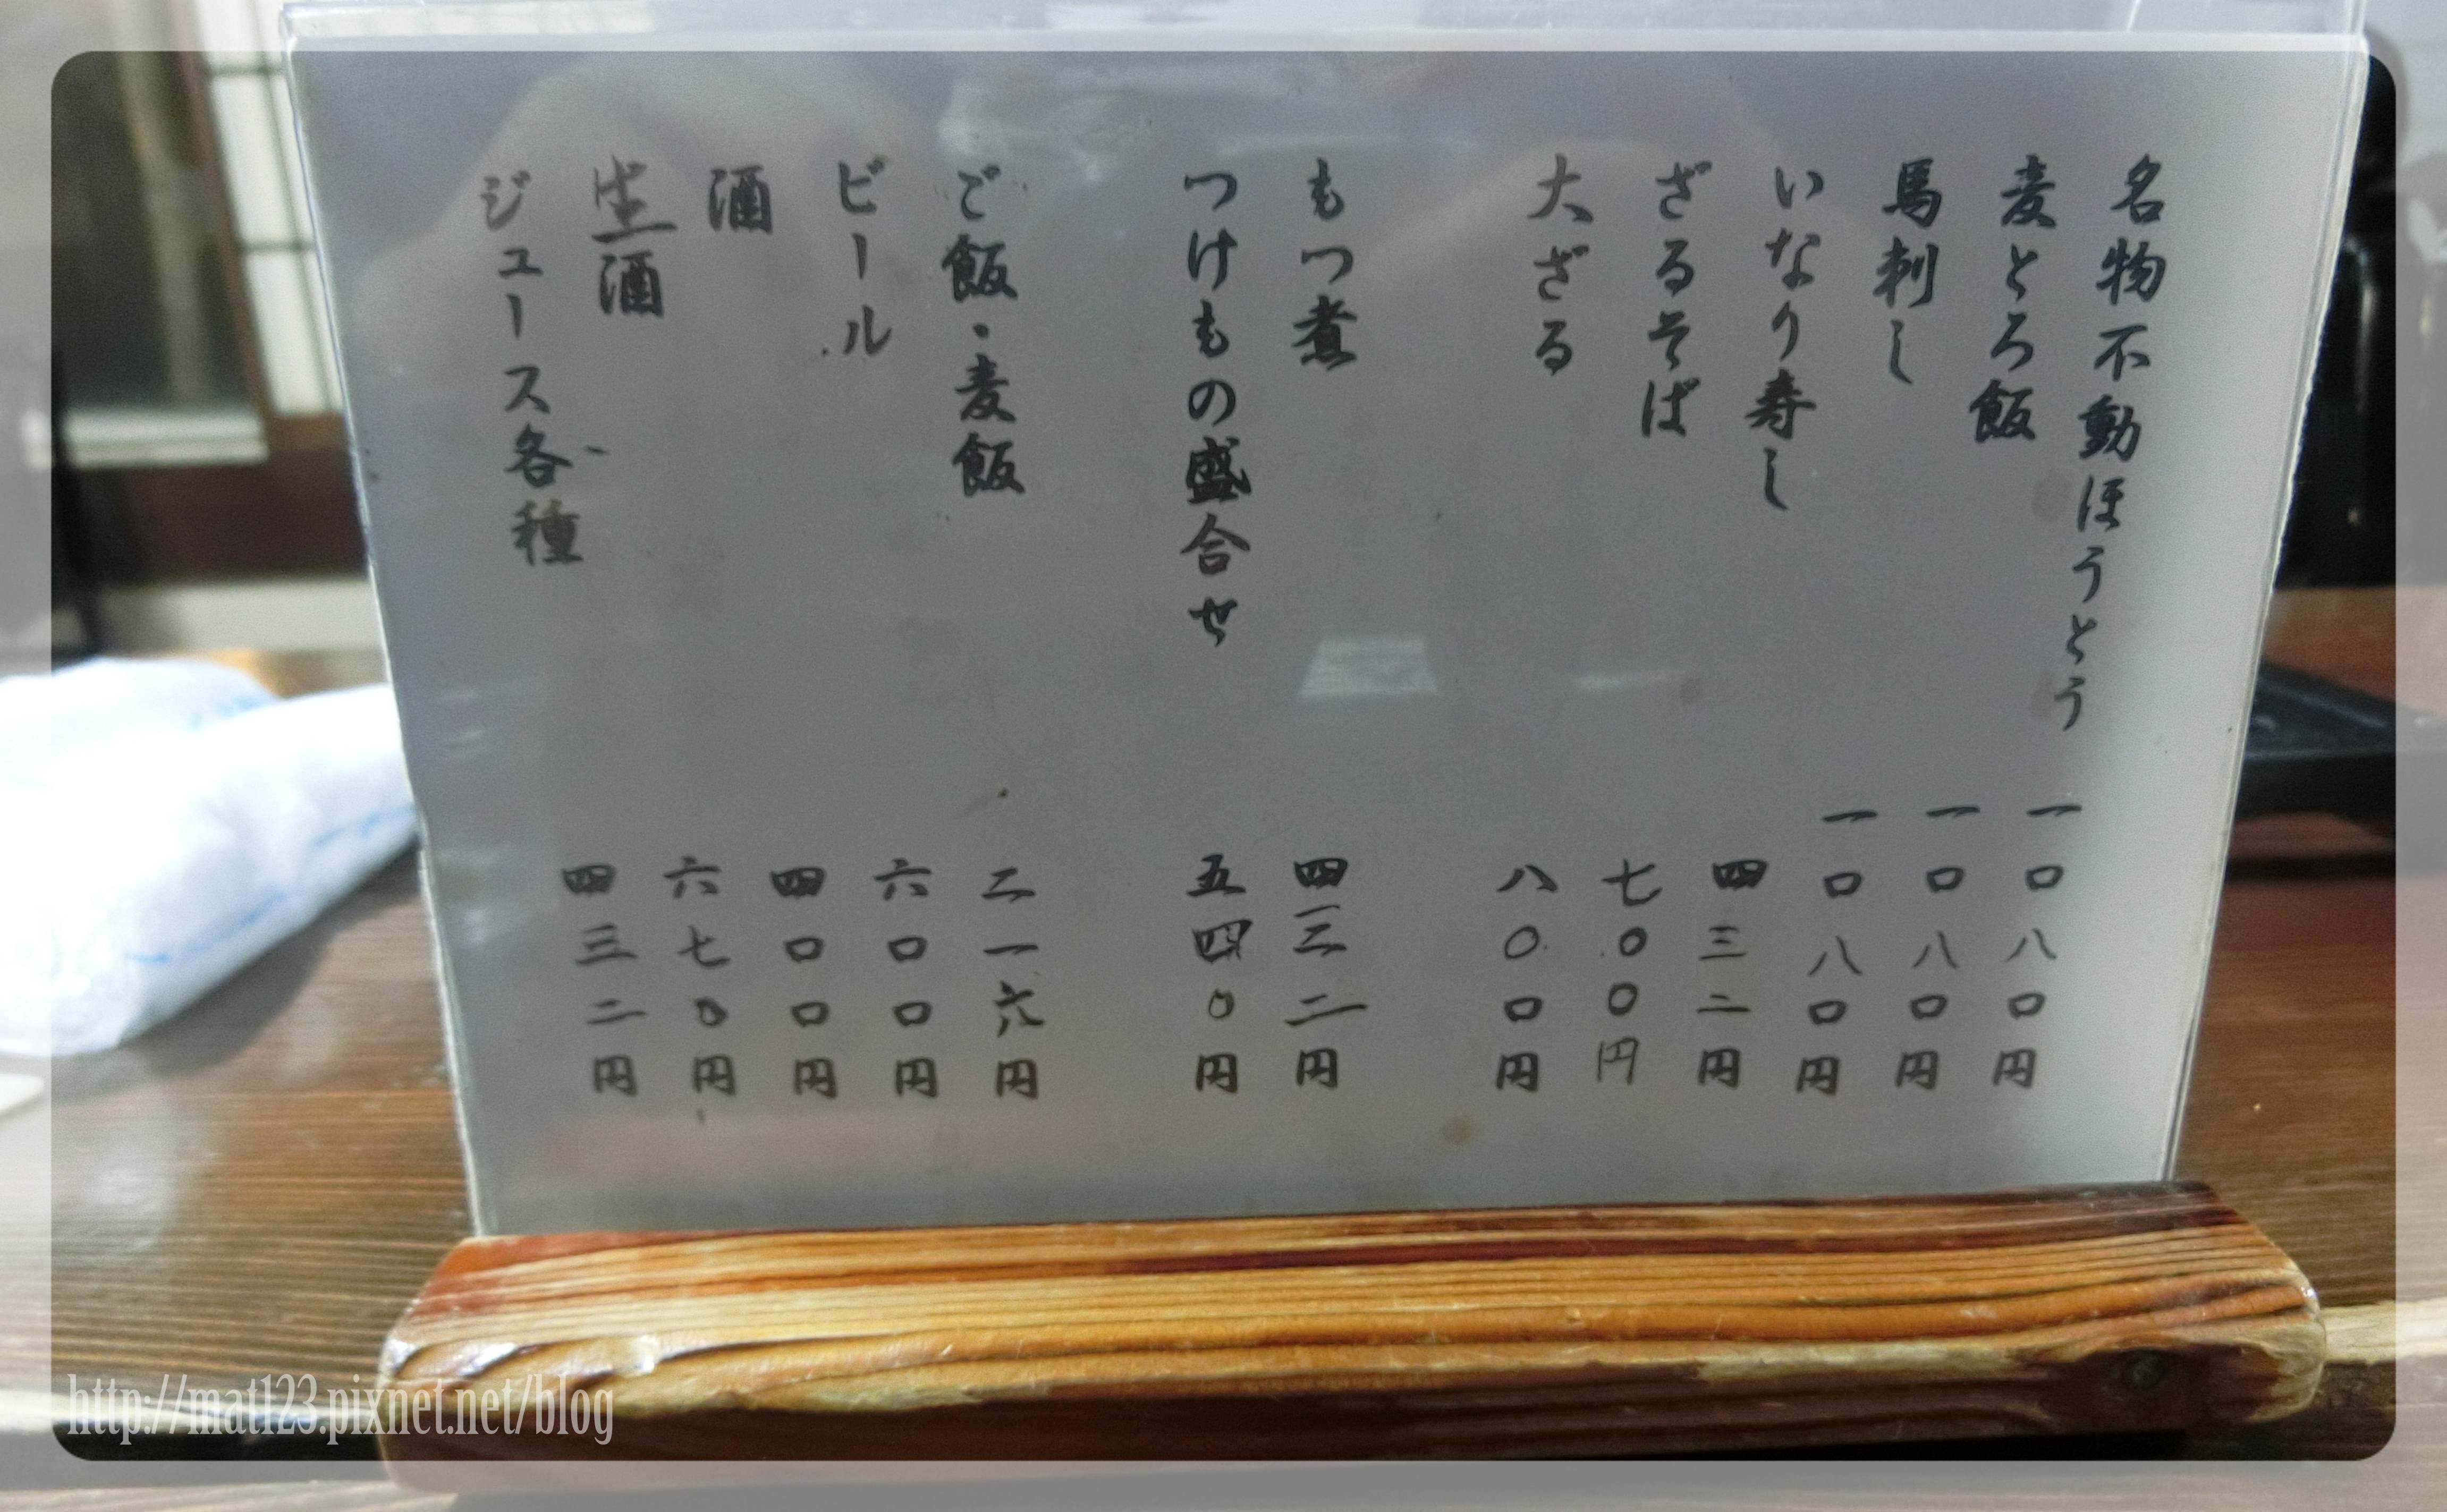 名物不動ほうとう 一〇八〇円
麦とろ飯 一〇八〇円
馬刺し 一〇八〇円
いなり寿し 四三二円
ざるそば 七〇〇円
大ざる 八〇〇円
もつ煮 四三二円
つけもの盛合せ 五四〇円
ご飯・麦飯 二一六円
ビール 六〇〇円
酒 四〇〇円
生酒 六七〇円
ジュース各種 四三二円
http://mat123.pixnet.net/blog